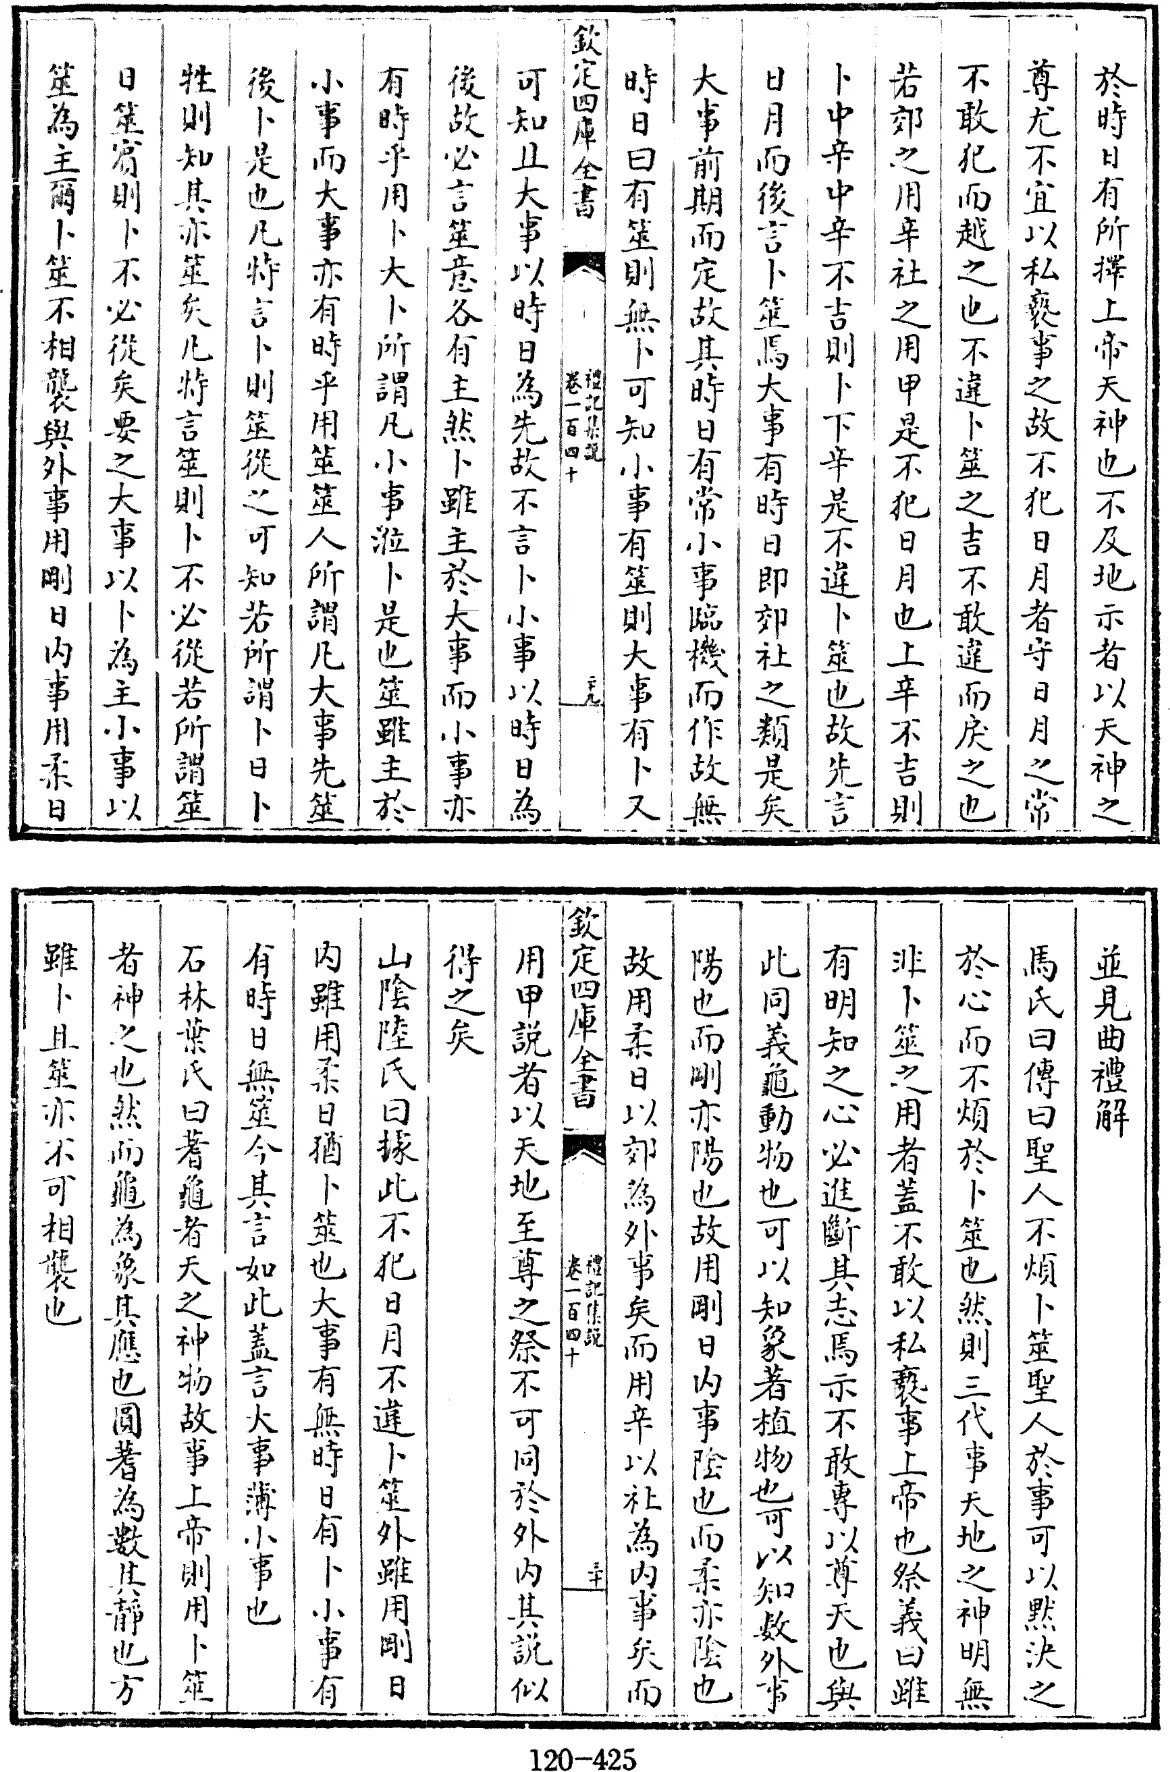 於時日有所擇上帝天神也不及地示者以天神之
尊尤不宜以私䙝事之故不犯日月者守日月之常
不敢犯而越之也不違卜筮之吉不敢違而戾之也
若郊之用辛社之用甲是不犯日月也上辛不吉則
卜中辛中辛不吉則卜下辛是不違卜筮也故先言
日月而後言卜筮焉大事有時日即郊社之類是矣
大事前期而定故其時日有常小事臨機而作故無
時日曰有筮則無卜可知小事有筮則大事有卜又
欽定四庫全書
禮記集說
卷一百四十
二十九
可知且大事以時日為先故不言卜小事以時日為
後故必言筮意各有主然卜雖主於大事而小事亦
有時乎用卜大卜所謂凡小事涖卜是也筮雖主於
小事而大事亦有時乎用筮筮人所謂凡大事先筮
後卜是也凡特言卜則筮從之可知若所謂卜日卜
牲則知其亦筮矣凡特言筮則卜不必從若所謂筮
日筮賓則卜不必從矣要之大事以卜為主小事以
筮為主爾卜筮不相襲與外事用剛日内事用柔日
並見曲禮解
馬氏曰傳曰聖人不煩卜筮聖人於事可以黙決之
於心而不煩於卜筮也然則三代事天地之神明無
非卜筮之用者蓋不敢以私䙝事上帝也祭義曰雖
有明知之心必進斷其志焉示不敢專以尊天也與
此同義龜動物也可以知象蓍植物也可以知數外事
陽也而剛亦陽也故用剛日内事陰也而柔亦陰也
故用柔日以郊為外事矣而用辛以社為内事矣而
欽定四庫全書
禮記集說
卷一百四十
三十
用甲説者以天地至尊之祭不可同於外内其説似
得之矣
山陰陸氏曰據此不犯日月不違卜筮外雖用剛日
内雖用柔日猶卜筮也大事有無時日有卜小事有
有時日無筮今其言如此蓋言大事薄小事也
石林葉氏曰蓍龜者天之神物故事上帝則用卜筮
者神之也然而龜為象其應也圓蓍為數其靜也方
雖卜且筮亦不可相襲也
120-425